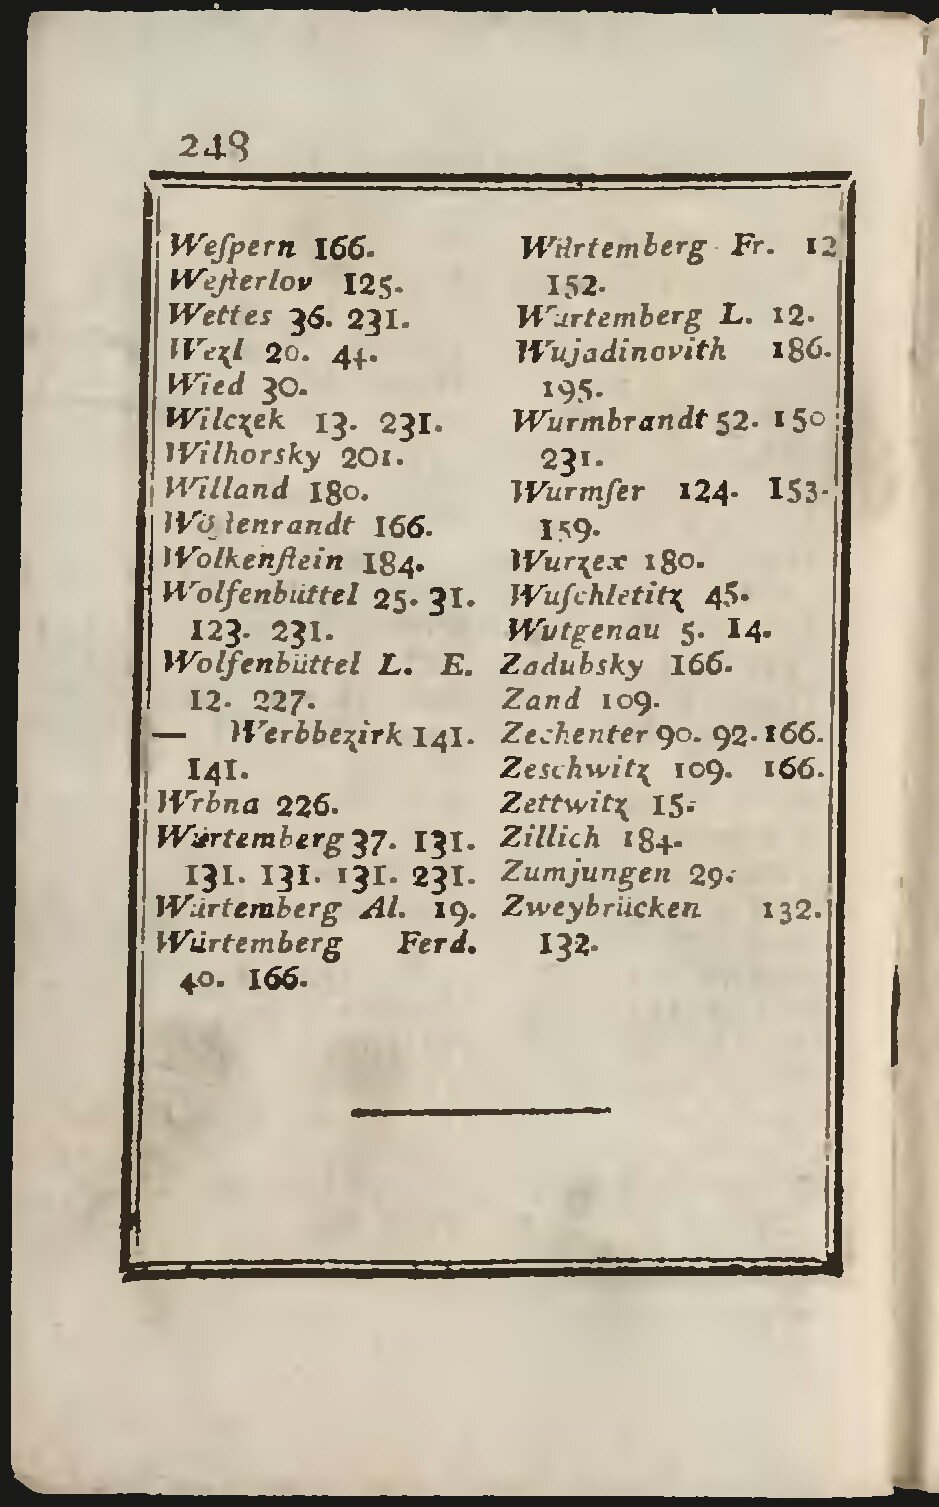 248
Weſpern 166.
Weſterlov 125.
Wettes 36. 231.
Wezl 20. 44.
Wied 30.
Wilczek 13. 231.
Wilhorsky 201.
Willand 180.
166.
Wolkenſtein 184.
Wolfenbüttel 25. 31.
123. 231.
Wolfenbüttel L. E.
12. 227.
— Werbbezirk 141.
141.
Wrbna 226.
Würtemberg 37. 131.
131. 131. 131. 231.
Würtemberg Al. 19.
Würtemberg Ferd.
40. 166.
Würtemberg Fr. 12
152.
Würtemberg L. 12.
Wujadinovith 186.
195.
Wurmbrandt 52. 150
231.
Wurmſer 124. 153.
159.
Wurzex 180.
Wuſchletitz 45.
Wutgenau 5. 14.
Zadubsky 166.
Zand 109.
Zechenter 90. 92. 166.
Zeschwitz 109. 166.
Zettwitz 15.
Zillich 184.
Zumjungen 29.
Zweybrücken 132.
132.